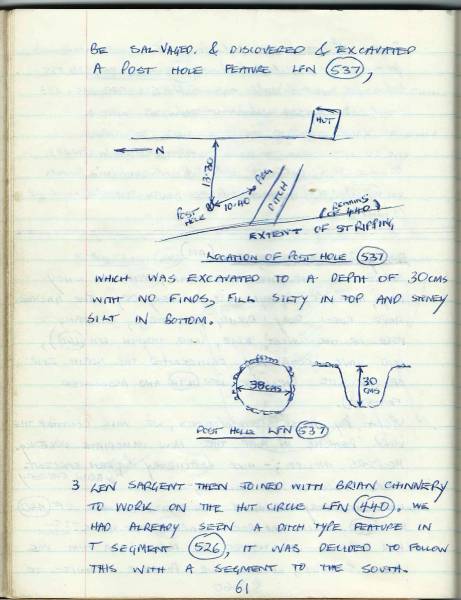 BE SALVAGED. & DISCOVERED & EXCAVATED
A POST HOLE FEATURE LFN 537,
HUT
N
13.70
POST HOLE
10.40
PEG
DITCH
(REMAINS OF 440)
EXTENT OF STRIPPING
LOCATION OF POST HOLE 537
WHICH WAS EXCAVATED TO A DEPTH OF 30CMS
WITH NO FINDS, FILL SILTY IN TOP AND STONEY
SILT IN BOTTOM.
38CMS
30 CMS
POST HOLE LFN 537
3 LEN SARGENT THEN JOINED WITH BRIAN CHINNERY
TO WORK ON THE HUT CIRCLE LFN 440. WE
HAD ALREADY SEEN A DITCH TYPE FEATURE IN
T SEGMENT 526, IT WAS DECIDED TO FOLLOW
THIS WITH A SEGMENT TO THE SOUTH.
61